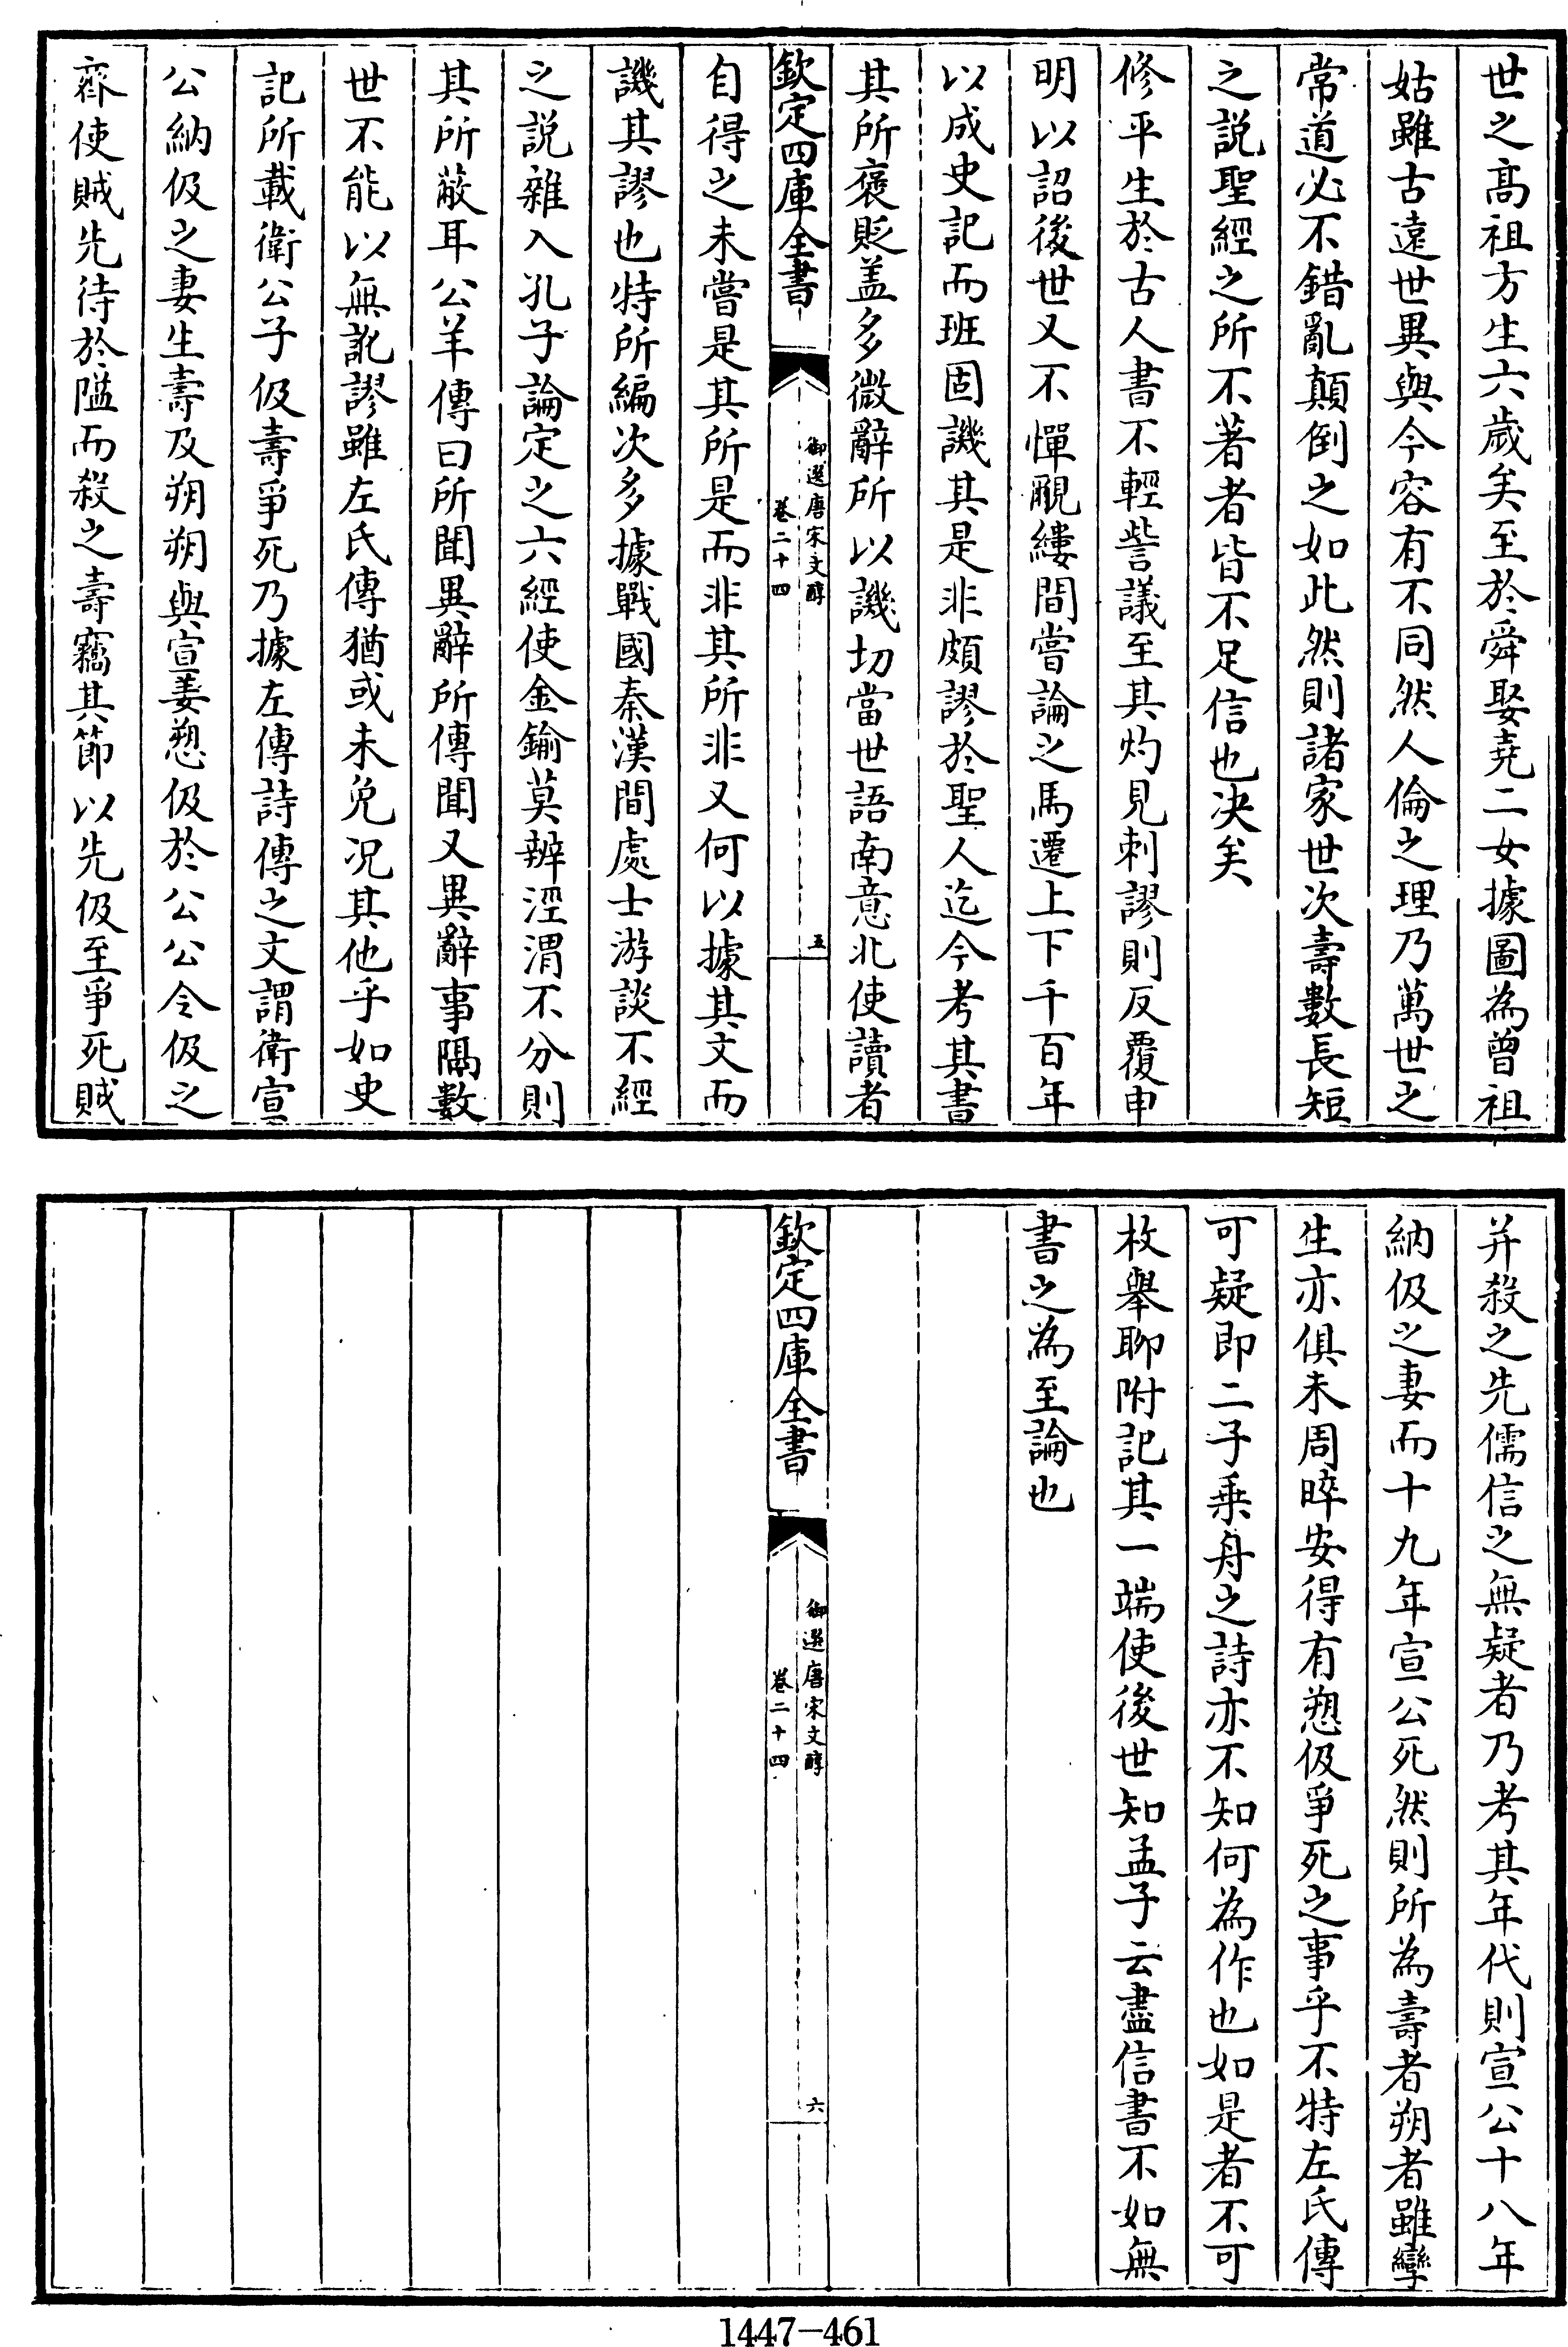 世之髙祖方生六歲矣至於舜娶堯二女據圖為曾祖
姑雖古遠世異與今容有不同然人倫之理乃萬世之
常道必不錯亂顛倒之如此然則諸家世次壽數長短
之説聖經之所不著者皆不足信也决矣
修平生於古人書不輕訾議至其灼見刺謬則反覆申
明以詔後世又不憚覼縷間嘗論之馬遷上下千百年
以成史記而班固譏其是非頗謬於聖人迄今考其書
其所褒貶盖多微辭所以譏切當世語南意北使讀者
欽定四庫全書
御選唐宋文醇
卷二十四
五
自得之未嘗是其所是而非其所非又何以據其文而
譏其謬也特所編次多據戰國秦漢間處士游談不經
之説雜入孔子論定之六經使金鍮莫辨涇渭不分則
其所蔽耳公羊傳曰所聞異辭所傳聞又異辭事隔數
世不能以無訛謬雖左氏傳猶或未免况其他乎如史
記所載衛公子伋壽爭死乃據左傳詩傳之文謂衛宣
公納伋之妻生壽及朔朔與宣姜愬伋於公公令伋之
齊使賊先待於隘而殺之壽竊其節以先伋至爭死賊
并殺之先儒信之無疑者乃考其年代則宣公十八年
納伋之妻而十九年宣公死然則所為壽者朔者雖孿
生亦俱未周晬安得有愬伋爭死之事乎不特左氏傳
可疑即二子乗舟之詩亦不知何為作也如是者不可
枚舉聊附記其一端使後世知孟子云盡信書不如無
書之為至論也
欽定四庫全書
御選唐宋文醇
卷二十四
六
1447-461